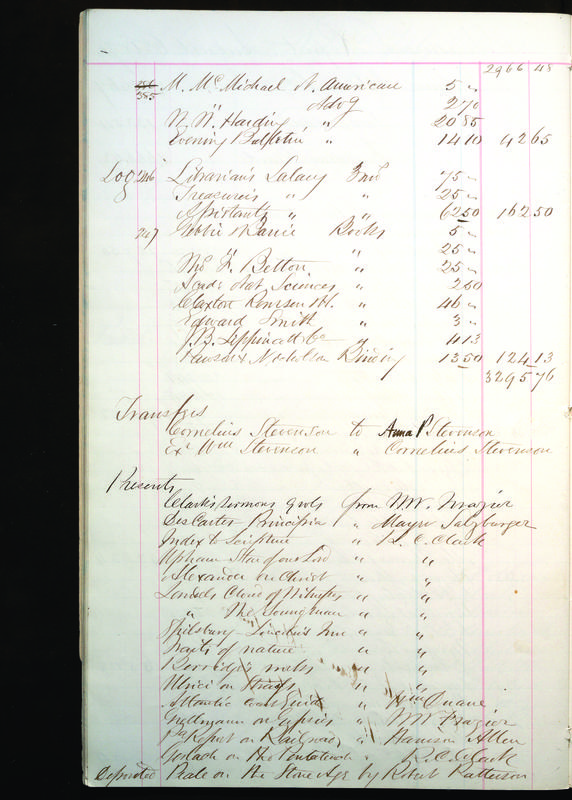 2966 48
385 M. McMichael N. American 5 "
Adog 270
W. W. Harding " 2085
Evening Bulletin " 1410 4265
Log 246 Librarian's Salary 3 mo 75 "
Treasurer's " " 25 "
Assistants " " 6250 16250
247 Gebbie & Barrie Books 5 "
" " 25 "
Thos F. Betton " 25 "
Acad. Nat Sciences " 250
Claxton Remsen & H. " 46 "
Edward Smith " 3 "
J. B. Lippincott & Co " 413
Pawson & Nicholson Binding 1350 12413
329576
Transfers
Cornelius Stevenson to Anna P Stevenson
Exr Wm Stevenson " Cornelius Stevenson
Presents
Clark's Sermons 9 vols from W. W. Frazier
Des Cartes Principia " Mayer Sulzburger
Index to Scripture " R. C. Clark
Upham Star of our Lord " "
Alexander on Christ " "
Cloud of Witnesses " "
" The Young man " "
Spilsbury Lincoln's Inn " "
Traits of nature " "
" "
on " "
Atlantic Coast Guide " Wm Duane
on " W W Frazier
Pa Report on Railroads " Harrison Allen
Gerlach on the Pentateuch " R. C. Clark
Deposited Peale on the Stone Age by Robert Patterson